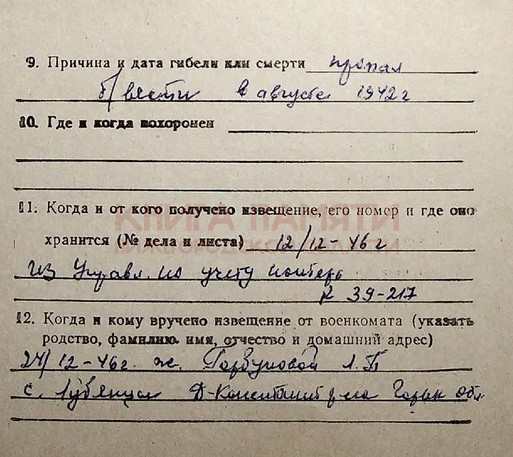 9. Причина и дата гибели или смерти пропал
б/ вести в августе 1942 г
10. Где и когда похоронен
11. Когда и от кого получено извещение, его номер и где оно
КНИГА ПАМЯТИ
хранится (№ дела и листа) 12/12-46 г
из Управл. по учету потерь
R 39-217
12. Когда и кому вручено извещение от военкомата (указать
родство, фамилию, имя, отчество и домашний адрес)
24/12-46г. ж. Горбуновой А. П
с. Д-Константин р-на Горьк обл